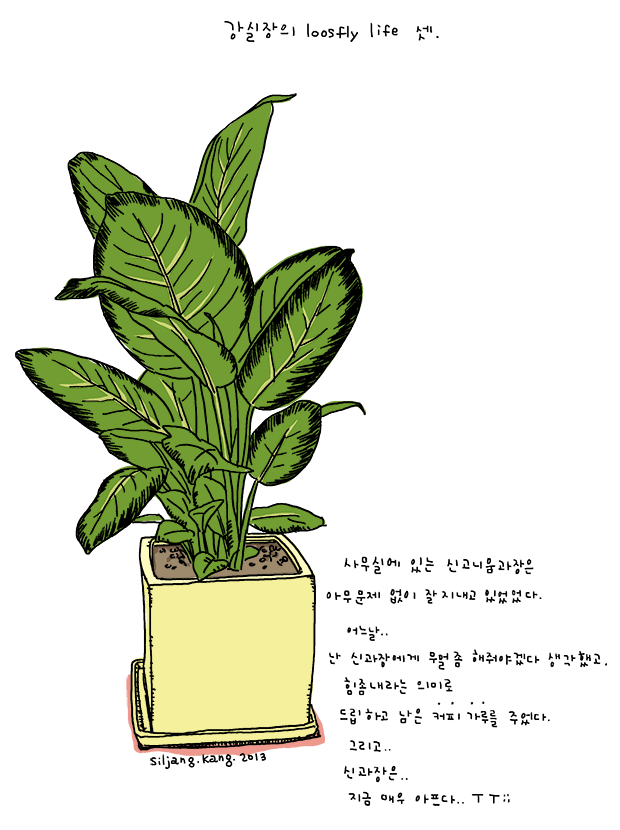 강실장의 loosfly life 셋.
사무실에 있는 신고니움과장은
아무문제 없이 잘지내고 있었었다.
어느날..
난 신과장에게 무얼좀 해줘야겠다 생각했고.
힘좀내라는 의미로
드립하고 남은 커피가루를 주었다.
그리고..
신과장은..
지금 매우 아프다.. ㅜㅜ;;
siljang.kang. 2013